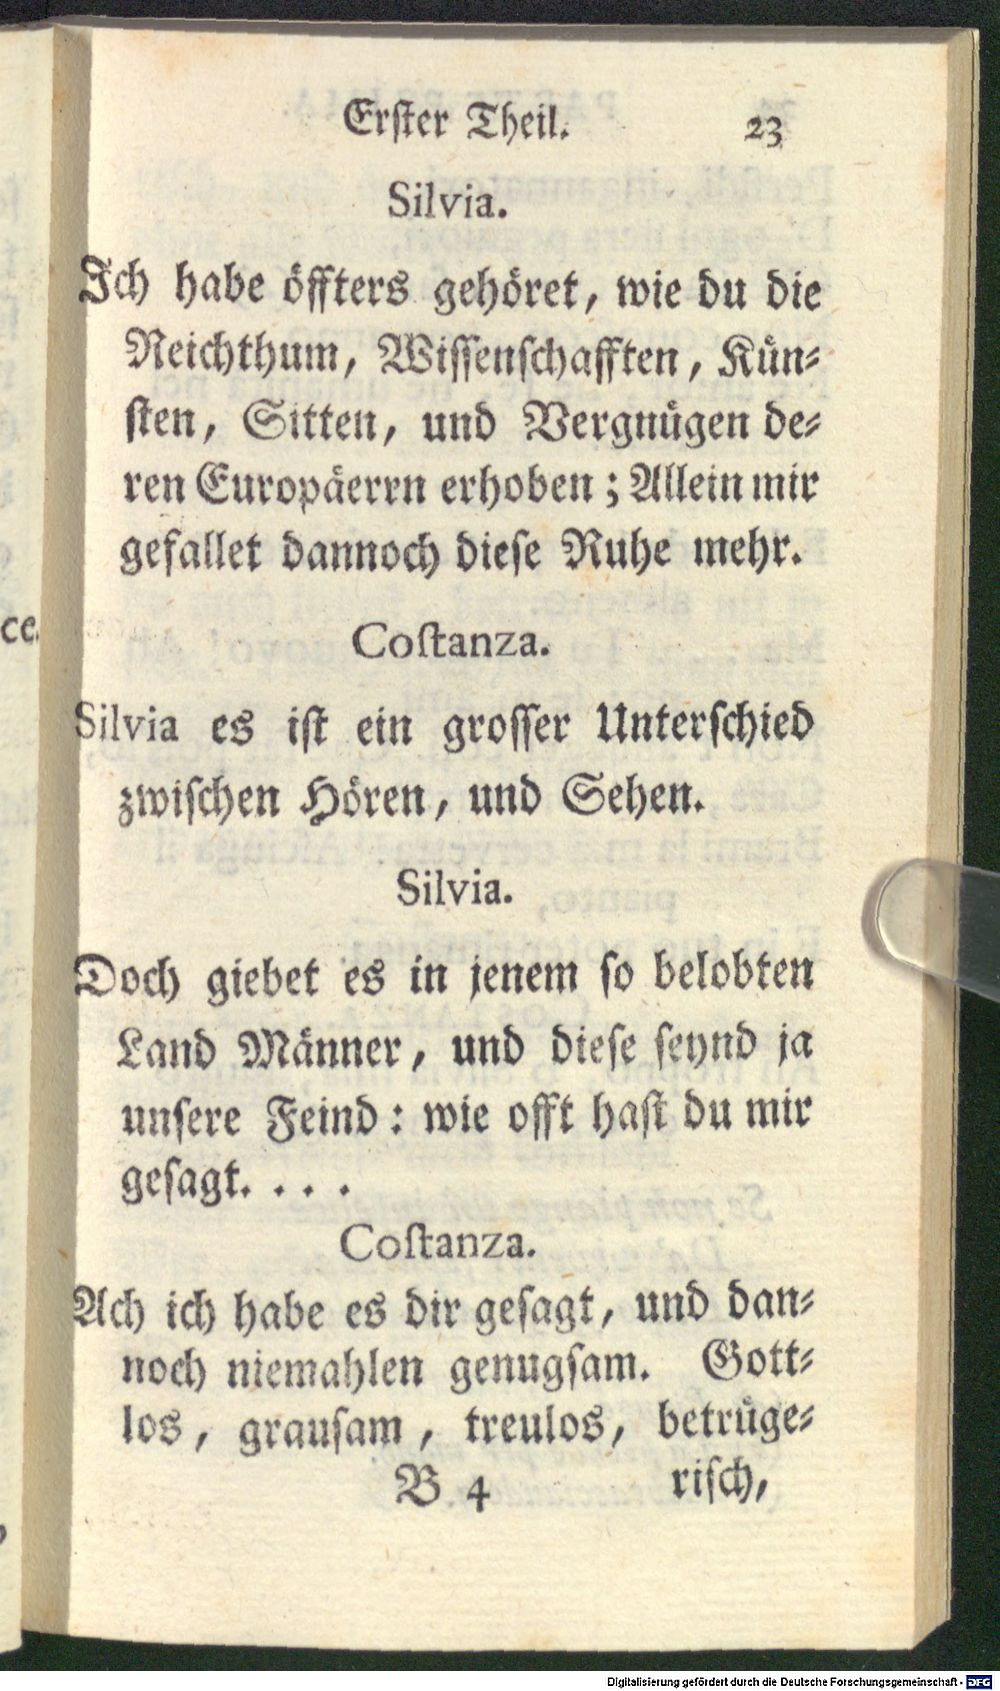 Erster Theil. 23
Silvia.
Ich habe öffters gehöret, wie du die
Reichthum, Wissenschafften, Kün-
sten, Sitten, und Vergnügen de-
ren Europäerrn erhoben; Allein mir
gefallet dannoch diese Ruhe mehr.
Costanza.
Silvia es ist ein grosser Unterschied
zwischen Hören, und Sehen.
Silvia.
Doch giebet es in jenem so belobten
Land Männer, und diese seynd ja
unsere Feind: wie offt hast du mir
gesagt. . . .
Costanza.
Ach ich habe es dir gesagt, und dan-
noch niemahlen genugsam. Gott-
los, grausam, treulos, betrüge-
B 4 risch,
ce.
Digitalisierung gefördert durch die Deutsche Forschungsgemeinschaft - DFG